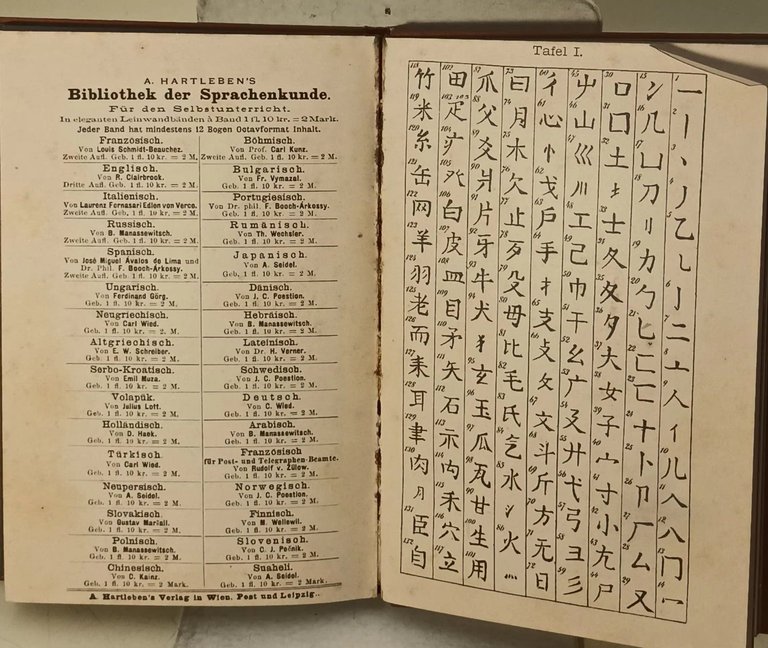 A. HARTLEBEN'S
Bibliothek der Sprachenkunde.
Für den Selbstunterricht.
In eleganten Leinwandbänden à Band 1 fl. 10 kr. = 2 Mark.
Jeder Band hat mindestens 12 Bogen Octavformat Inhalt.
Französisch.
Von Louis Schmidt-Beauchez.
Zweite Aufl. Geb. 1 fl. 10 kr. = 2 M.
Englisch.
Von R. Clairbrook.
Dritte Aufl. Geb. 1 fl. 10 kr. = 2 M.
Italienisch.
Von Laurenz Fornasari Edlen von Verce.
Zweite Aufl. Geb. 1 fl. 10 kr. = 2 M.
Russisch.
Von B. Manassewitsch.
Zweite Aufl. Geb. 1 fl. 10 kr. = 2 M.
Spanisch.
Von José Miguel Avalos de Lima und
Dr. Phil. F. Booch-Arkossy.
Zweite Aufl. Geb. 1 fl. 10 kr. = 2 M.
Ungarisch.
Von Ferdinand Görg.
Geb. 1 fl. 10 kr. = 2. M.
Neugriechisch.
Von Carl Wied.
Geb. 1 fl. 10 kr. = 2 M.
Altgriechisch.
Von E. W. Schreiber.
Geb. 1 fl. 10 kr. = 2 M.
Serbo-Kroatisch.
Von Emil Muza.
Geb. 1 fl. 10 kr. = 2 M.
Volapük.
Von Julius Lott.
Geb. 1 fl. 10 kr. = 2 M.
Holländisch.
Von D. Haek.
Geb. 1 fl. 10 kr. = 2 M.
Türkisch.
Von Carl Wied.
Geb. 1 fl. 10 kr. = 2 M.
Neupersisch.
Von A. Seidel.
Geb. 1 fl. 10 kr. = 2 M.
Slovakisch.
Von Gustav Maršall.
Geb. 1 fl. 10 kr. = 2 M.
Polnisch.
Von B. Manassewitsch.
Geb. 1 fl. 10 kr. = 2 M.
Chinesisch.
Von C. Kainz.
Geb. 1 fl. 10 kr. = 2 Mark.
Böhmisch.
Von Prof. Carl Kunz.
Zweite Aufl. Geb. 1 fl. 10 kr. = 2 M.
Bulgarisch.
Von Fr. Vymazal.
Geb. 1 fl. 10 kr. = 2 M.
Portugiesisch.
Von Dr. phil. F. Booch-Arkossy.
Geb. 1 fl. 10 kr. = 2 M.
Rumänisch.
Von Th. Wechsler.
Geb. 1 fl. 10 kr. = 2 M.
Japanisch.
Von A. Seidel.
Geb. 1 fl. 10 kr. = 2 M.
Dänisch.
Von J. C. Poestion.
Geb. 1 fl. 10 kr. = 2 M.
Hebräisch.
Von B. Manassewitsch.
Geb. 1 fl. 10 kr. = 2 M.
Lateinisch.
Von Dr. H. Verner.
Geb. 1 fl. 10 kr. = 2 M.
Schwedisch.
Von J. C. Poestion.
Geb. 1 fl. 10 kr. = 2 M.
Deutsch.
Von C. Wied.
Geb. 1 fl. 10 kr. = 2 M.
Arabisch.
Von B. Manassewitsch.
Geb. 1 fl. 10 kr. = 2 M.
Französisch
für Post- und Telegraphen-Beamte.
Von Rudolf v. Zülow.
Geb. 1 fl. 10 kr. = 2 M.
Norwegisch.
Von J. C. Poestion.
Geb. 1 fl. 10 kr. = 2 M.
Finnisch.
Von M. Wellewil.
Geb. 1 fl. 10 kr. = 2 M.
Slovenisch.
Von C. J. Pečnik.
Geb. 1 fl. 10 kr. = 2 M.
Suaheli.
Von A. Seidel.
Geb. 1 fl. 10 kr. = 2 Mark.
A. Hartleben's Verlag in Wien, Pest und Leipzig.
Tafel I.
一丨丶丿乙乚亅二亠人亻儿入八冂冖
冫几凵刀刂力勹匕匚匸十卜卩厂厶又
口囗土士夂夊夕大女子宀寸小尢尸
屮山巛川工己巾干幺广廴廾弋弓彐彡
彳心忄戈戶手扌支攴攵文斗斤方无日
曰月木欠止歹殳毋比毛氏气水氵火灬
爪父爻爿片牙牛犬犭玄玉瓜瓦甘生用
田疋疒癶白皮皿目矛矢石示禸禾穴立
竹米糸缶网羊羽老而耒耳聿肉月臣自